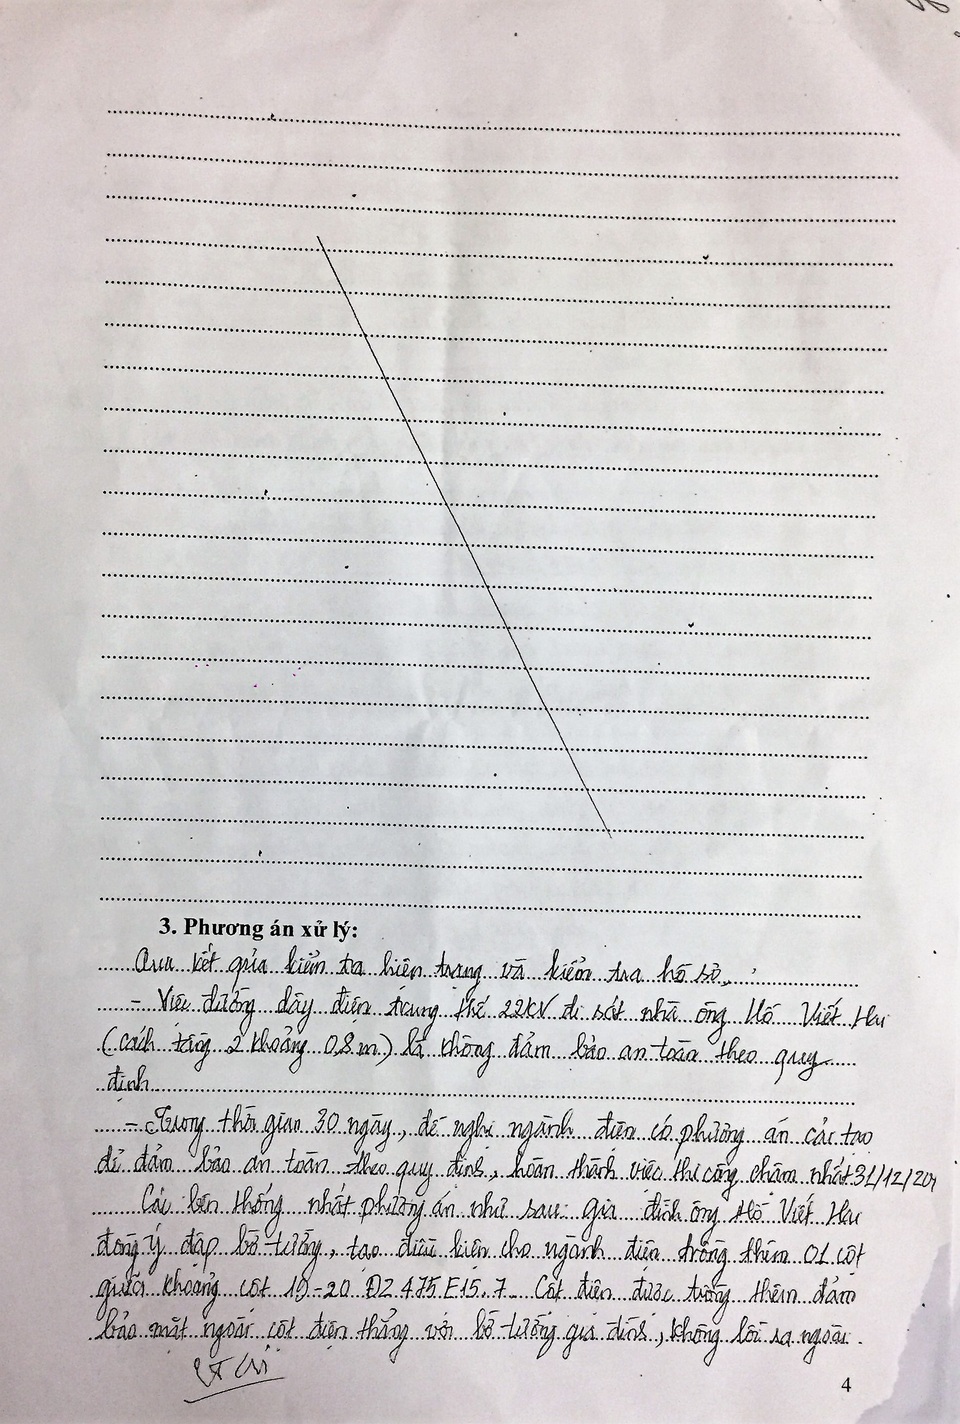 3. Phương án xử lý:
Qua kết qủa kiểm tra hiện trạng và kiểm tra hồ sơ,
- Việc đường dây điện trung thế 22KV đi sát nhà ông Hồ Viết Hu
(cách tầng 2 khoảng 0,8m) là không đảm bảo an toàn theo quy
định
- Trong thời gian 30 ngày, đề nghị ngành điện có phương án cải tạo
để đảm bảo an toàn theo quy định, hoàn thành việc thi công chậm nhất 31/12/201
Các bên thống nhất phương án như sau: Gia đình ông Hồ Viết Hu
đồng ý đập bờ tường, tạo điều kiện cho ngành điện trồng thêm 01 cột
giữa khoảng cột 19-20 ĐZ 475 E15.7. Cột điện được trồng thêm đảm
bảo mặt ngoài cột điện thẳng với bờ tường gia đình, không lồi ra ngoài.
4